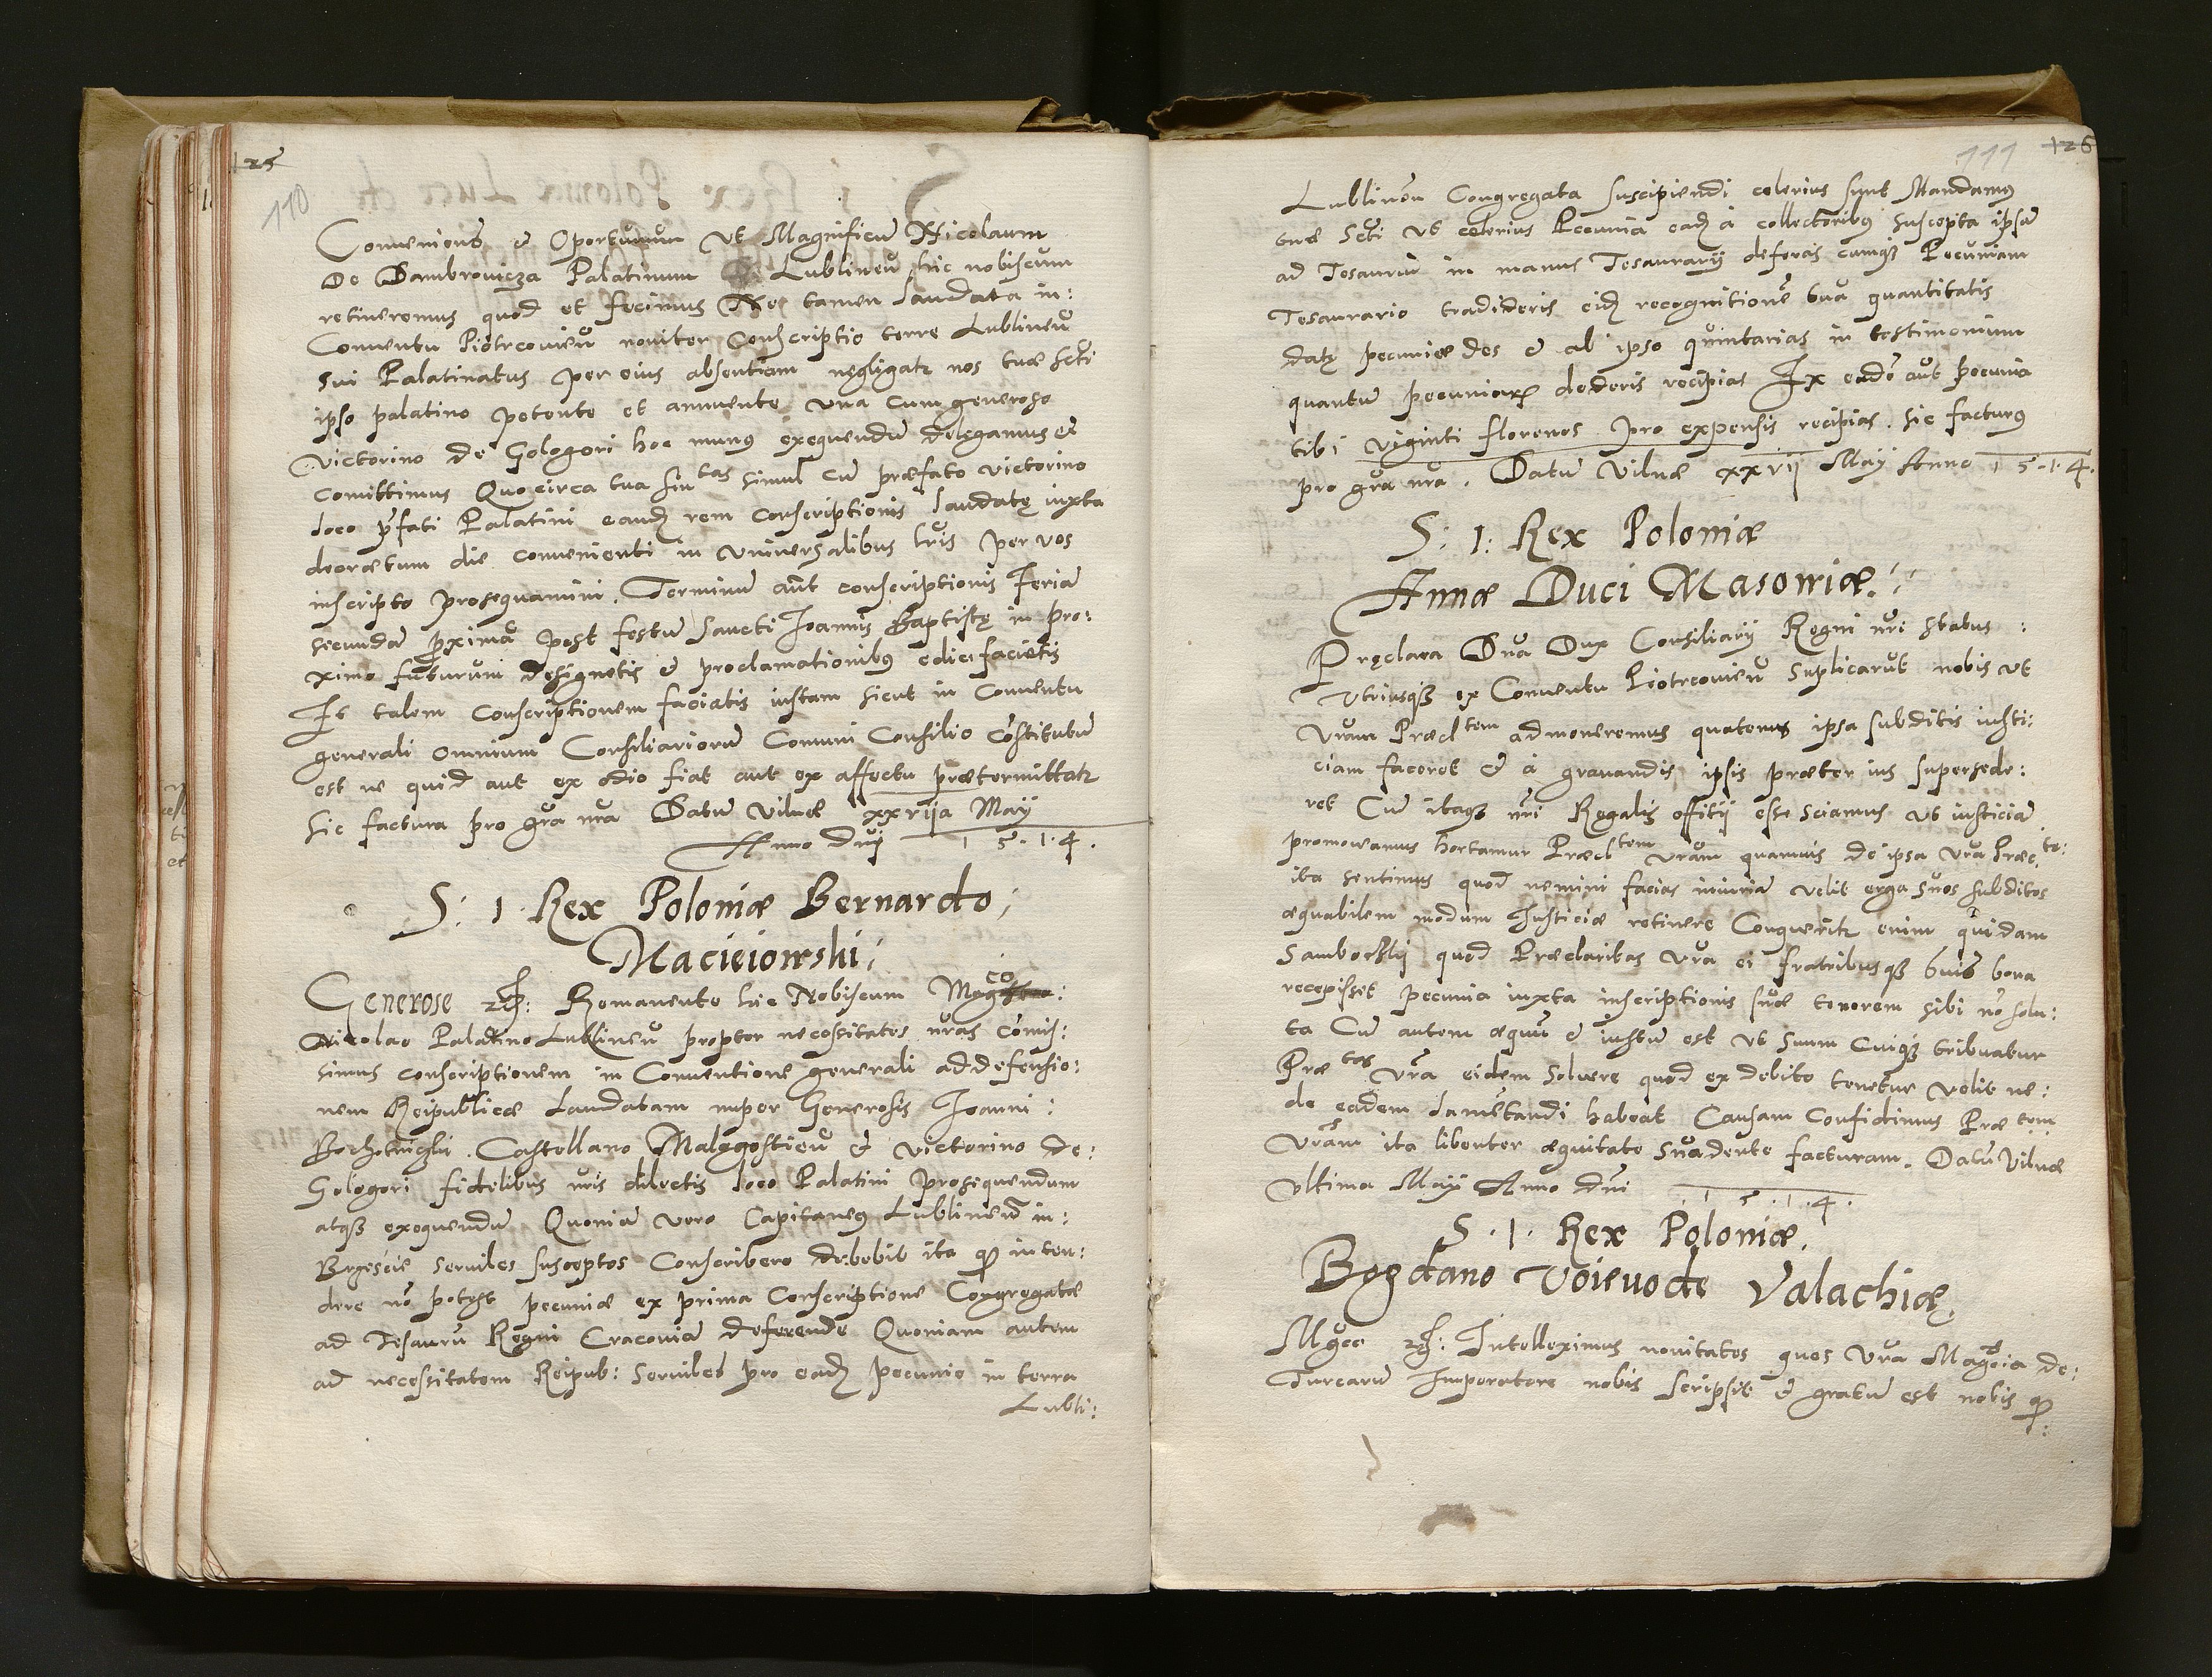 125
110
Conueniens et Oportunum Vt Magnificu Nicolaum
De Dambrouicza Palatinum Lublineñ hic nobiscum
retineremus quod et fecimus Ne tamen laudata in:
Conuentu Piotrcouieñ nouiter Conscriptio terre Lublineñ
sui Palatinatus per eius absentiam negligatr nos tuæ scti
ipso palatino petente et annuente vna cum generoso
Victorino de Gologori hoc munus exequendu delegamus et
comittimus Quocirca tua sintas simul cu præfato victorino
loco pfati Palatini eand rem conscriptionis laudatę iuxta
decretum die conuenienti in vniuersalibus lris per vos
inscripto prosequamini. Terminu aut conscriptionis Feria
secunda proxima post festu sancti Joannis Baptistę in pro:
ximo futurum designetis et proclamationibus edici faciatis
Et talem conscriptionem faciatis iustam sicut in Conuentu
generali omnium Consiliarioru Comuni Consilio costitutu
est ne quid aut ex odio fiat aut ex affectu prætermittatr
sic factura pro gra nra Datu Vilnæ xxvija May
Anno dnj 1 5 · 1 · 4 ·
S: 1 · Rex Poloniæ Bernardo,
Macieiowski,
Generose etc: Remanente hic Nobiscum Magco:
Nicolao Palatino Lublineñ propter necessitates nras comis:
simus conscriptionem in Conuentione generali ad defensio:
nem Reipublicæ Laudatam nuper Generosis Joanni:
Bochotniczki. Castellano Malogostieñ et victorino de:
Gologori fidelibus nris dilectis loco Palatini prosequendum
atqз exequendu Quonia vero Capitaneus Lublineñ in:
Brzescie seruiles susceptos Conscribere debebit ita qd inten:
dere no potest pecuniæ ex prima Conscriptione Congregatæ
ad Tesauru Regni Cracouia deferende Quoniam autem
ad necessitatem Reipub: seruiles pro ead pecunie in terra
Lubli:
111
126
Lublineñ Congregata suscipiendi celerius sunt Mandamus
tuæ Scti vt celerius Pecunia ead à collectoribus suscepta ipsa
ad Tesauru in manus Tesaurarij deferas cumqз Pecuniam
Tesaurario tradideris eid recognitione tua quantitatis
datę pecuniæ des et ab ipso quintarias in testimonium
quantu pecuniaru dederis recipias Ex eade aut pecunia
tibi viginti florenos pro expensis recipias. sic facturus
pro gra nra. Datu Vilnæ xxvij May Anno 1 5 · 1 · 4 ·
S: 1: Rex Poloniæ
Annæ Duci Masowiæ.
Pręclara Dna Dux Consiliarij Regni nri status:
Vtriusqз ex Conuentu Piotrcouieñ Suplicarut nobis vt
Vram Præcltem admoneremus quatenus ipsa subditis iusti:
ciam faceret et à grauandis ipsis præter ius supersede:
ret Cu itaqз nri Regalis offitij esse sciamus vt iusticia
promoueamus hortamur Præcltem vram quamuis de ipsa vra Præc.te:
ita sentimus quod nemini facias iniuria velit erga suos subditos
æquabilem modum Justiciæ retinere Conqueritr enim quidam
Samboczkij quod Præclaritas vra ei fratribusqз suis bona
recepisset pecunia iuxta inscriptionis suæ tenorem sibi no solu:
ta Cu autem æquu et iustu est vt suum cuiqз tribuatur
Præ tas vra eidem soluere quod ex debito tenetur velit ne:
de eadem lametandi habeat Causam Confidimus Præ tem
vram ita libenter æquitate suadente facturam. Datu Vilnæ
vltima May Anno dni 1 · 5 · 1 · 4 ·
S · 1 · Rex Poloniæ,
Bogdano Voieuode Valachiæ,
Mgce etc: Intelleximus nouitates quas Vra Magcia de:
Turcaru Imperatore nobis scripsit et gratu est nobis qd: